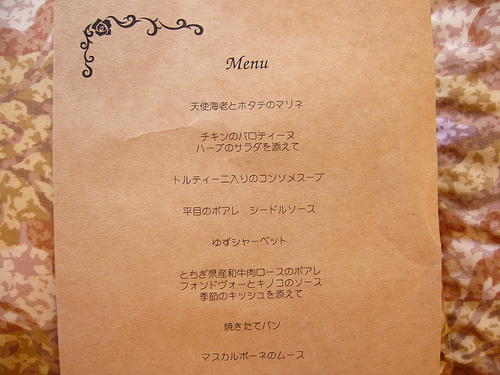 Menu
天使海老とホタテのマリネ
チキンのバロティーヌ
ハーブのサラダを添えて
トルティーニ入りのコンソメスープ
平目のポアレ　シードルソース
ゆずシャーベット
とちぎ県産和牛肉ロースのポアレ
フォンドヴォーとキノコのソース
季節のキッシュを添えて
焼きたてパン
マスカルポーネのムース